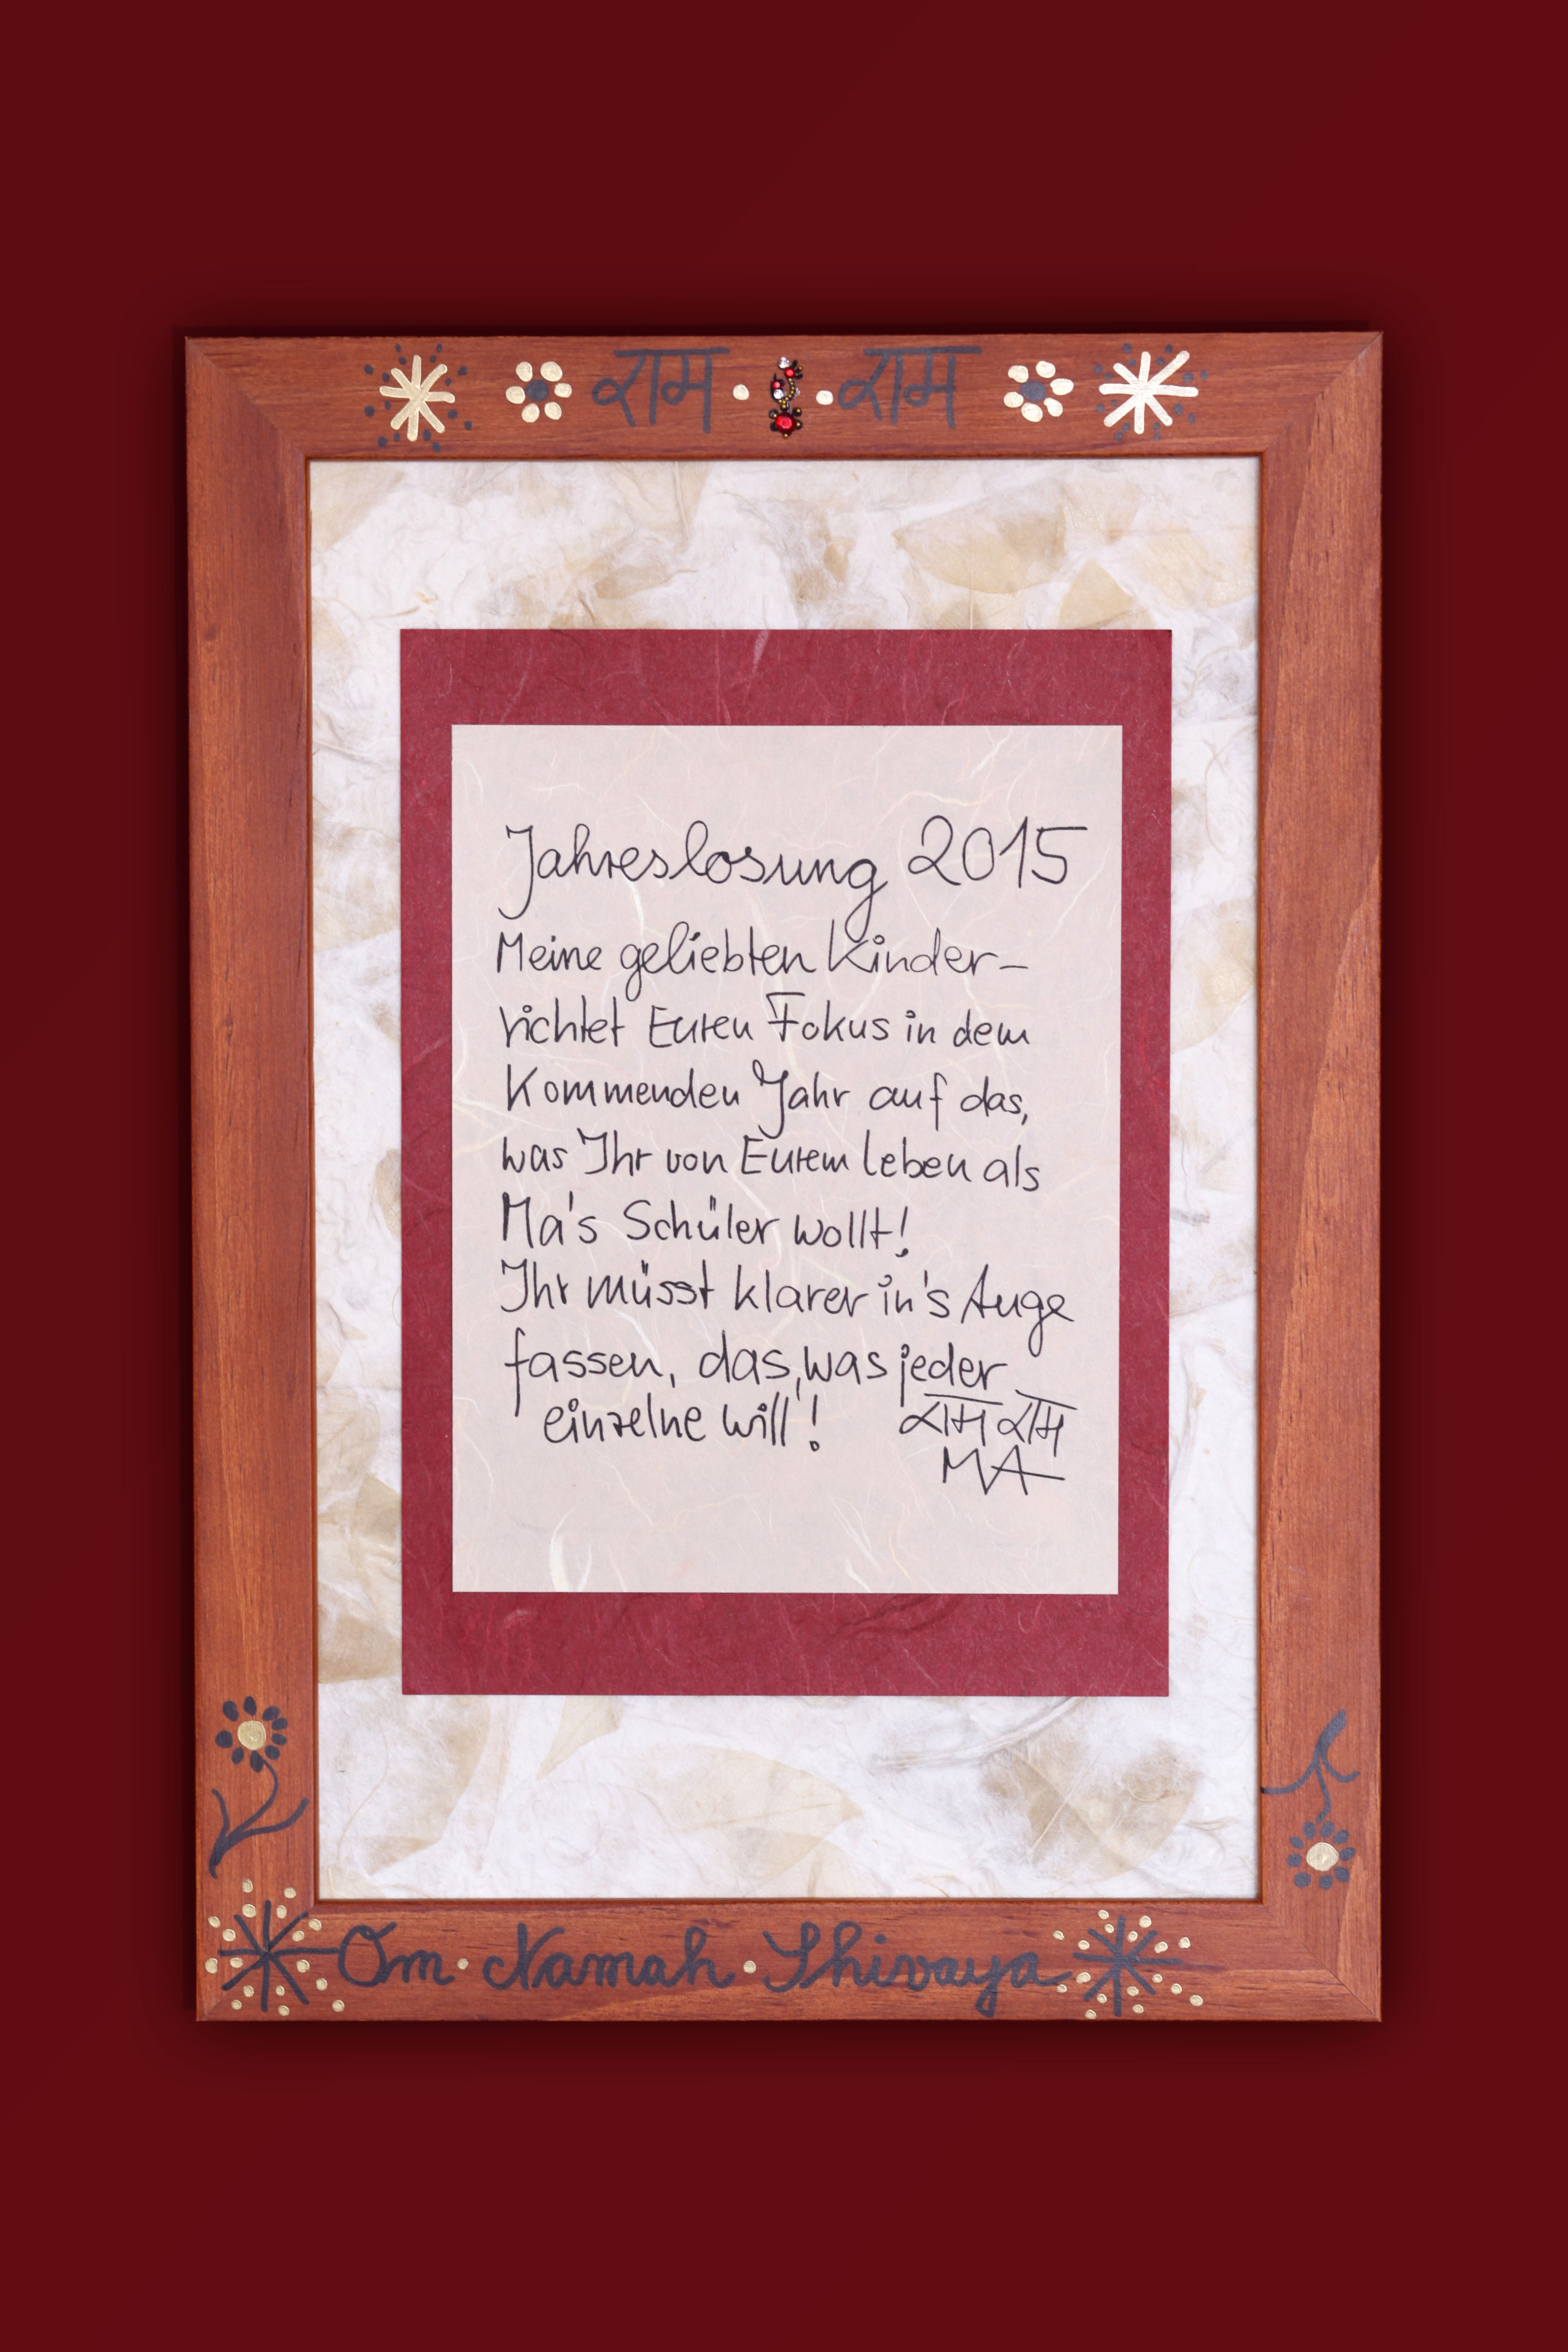 राम · राम
Jahreslosung 2015
Meine geliebten Kinder –
richtet Euren Fokus in dem
Kommenden Jahr auf das,
was Ihr von Eurem Leben als
Ma's Schüler wollt!
Ihr müsst klarer in's Auge
fassen, das, was jeder
einzelne will!
राम राम
MA
Om · Namah · Shivaya